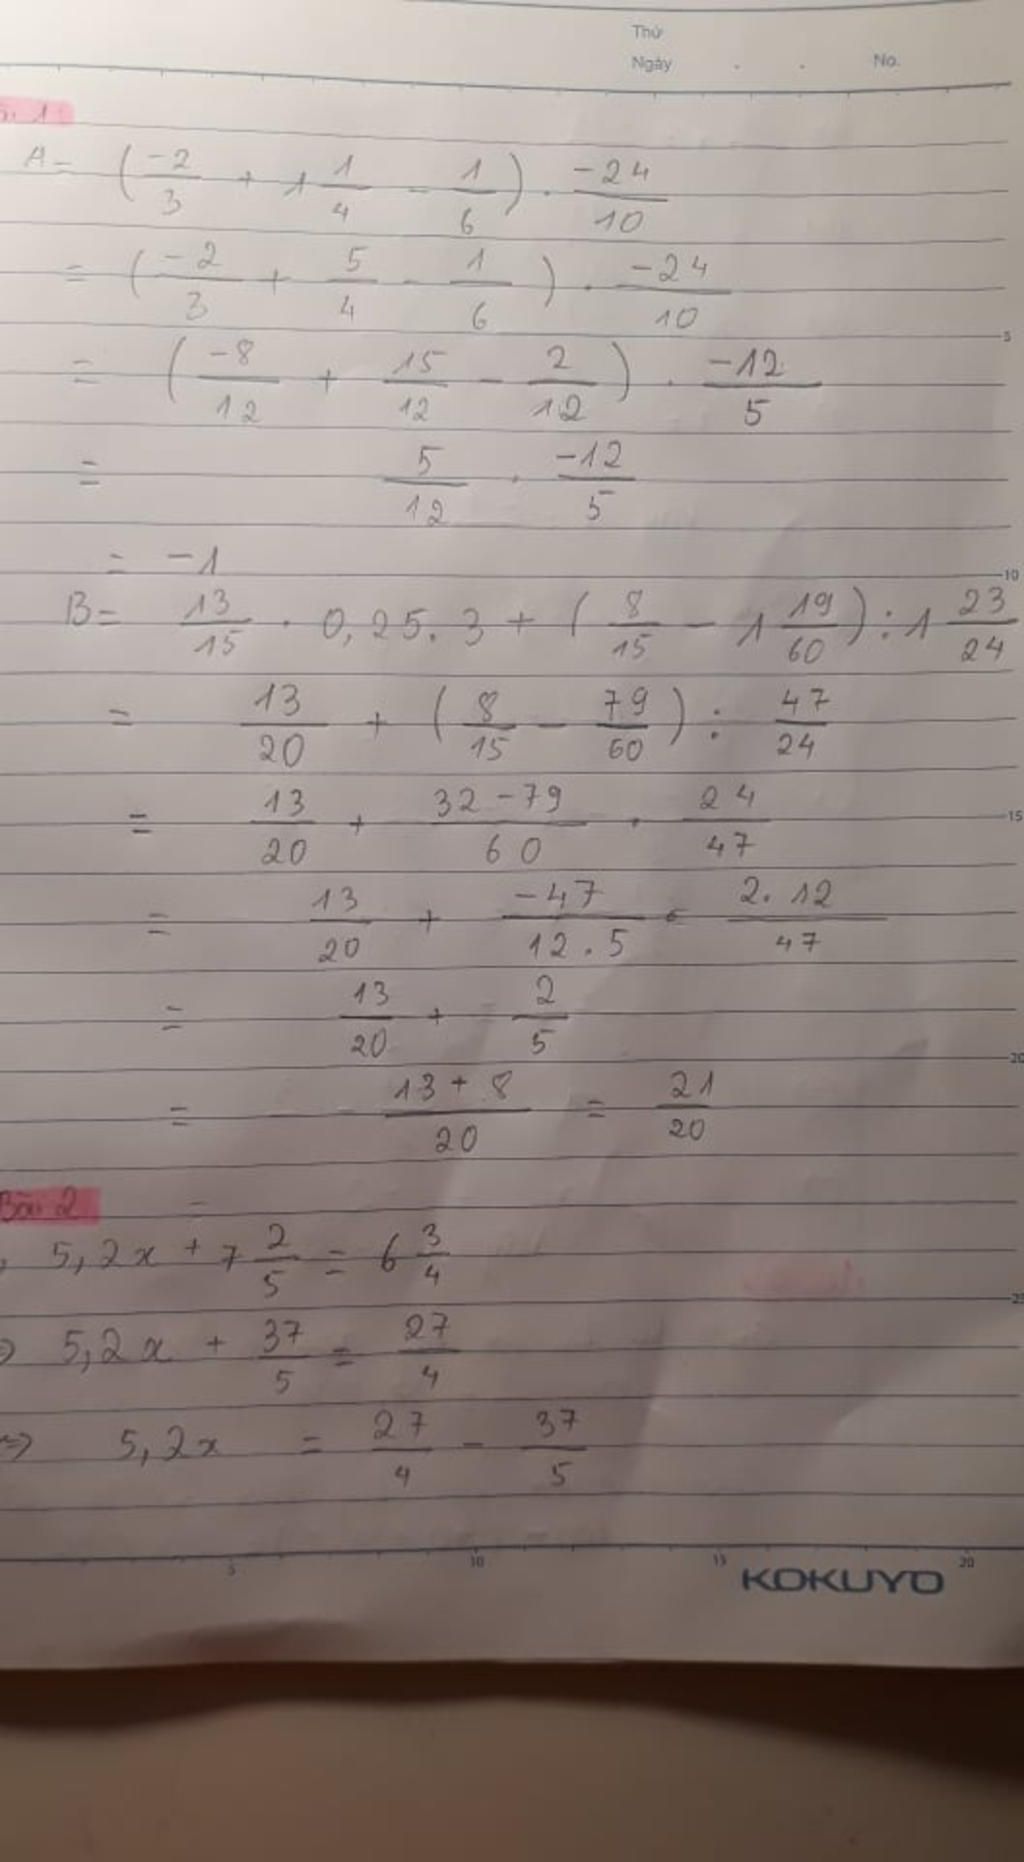 Thứ
Ngày . . No.
1
A = (-2/3 + 1 1/4 - 1/6) . -24/10
= (-2/3 + 5/4 - 1/6) . -24/10
= (-8/12 + 15/12 - 2/12) . -12/5
= 5/12 . -12/5
= -1
B = 13/15 . 0,25.3 + (8/15 - 1 19/60) : 1 23/24
= 13/20 + (8/15 - 79/60) : 47/24
= 13/20 + 32-79/60 . 24/47
= 13/20 + -47/12.5 . 2.12/47
= 13/20 + 2/5
= 13+8/20 = 21/20
Bài 2
5,2x + 7 2/5 = 6 3/4
=> 5,2x + 37/5 = 27/4
=> 5,2x = 27/4 - 37/5
5 10 15 20
KOKUYO